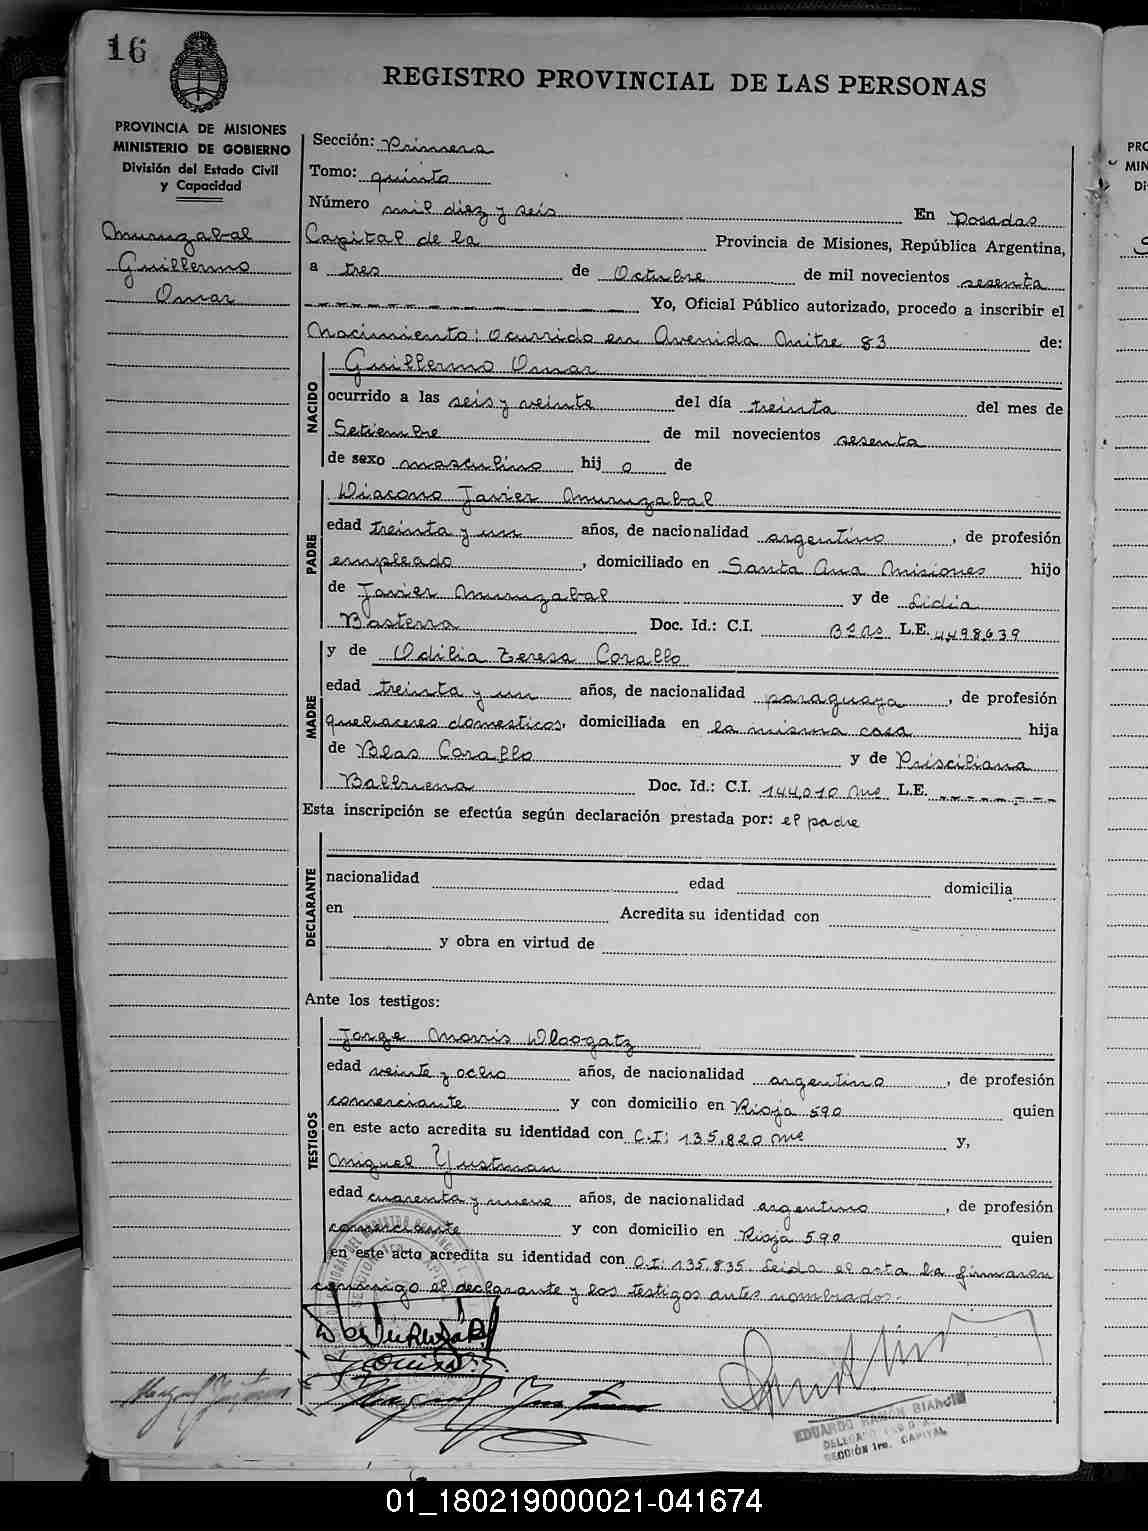 16
REGISTRO PROVINCIAL DE LAS PERSONAS
PROVINCIA DE MISIONES
MINISTERIO DE GOBIERNO
División del Estado Civil
y Capacidad
Muruzabal
Guillermo
Omar
Sección: Primera
Tomo: quinto
Número mil diez y seis En Posadas
Capital de la Provincia de Misiones, República Argentina,
a tres de Octubre de mil novecientos sesenta
Yo, Oficial Público autorizado, procedo a inscribir el
Nacimiento: ocurrido en Avenida Mitre 83 de:
NACIDO
Guillermo Omar
ocurrido a las seis y veinte del día treinta del mes de
Setiembre de mil novecientos sesenta
de sexo masculino hij o de
PADRE
Diacono Javier Muruzabal
edad treinta y un años, de nacionalidad argentino, de profesión
empleado, domiciliado en Santa Ana Misiones hijo
de Javier Muruzabal y de Lidia
Basterra Doc. Id.: C.I. L.E. 4498639
y de Odilia Teresa Corallo
MADRE
edad treinta y un años, de nacionalidad paraguaya, de profesión
quehaceres domesticos, domiciliada en la misma casa hija
de Blas Corallo y de Prisciliana
Balbuena Doc. Id.: C.I. 144,010 Mnes L.E. --------
Esta inscripción se efectúa según declaración prestada por: el padre
DECLARANTE
nacionalidad edad domicilia
en Acredita su identidad con
y obra en virtud de
Ante los testigos:
TESTIGOS
Jorge Morris
edad veinte y ocho años, de nacionalidad argentino, de profesión
comerciante y con domicilio en Rioja 590 quien
en este acto acredita su identidad con C.I: 135.820 Mnes y,
Miguel Yustman
edad cuarenta y nueve años, de nacionalidad argentino, de profesión
comerciante y con domicilio en Rioja 590 quien
en este acto acredita su identidad con C.I: 135.835. Leida el acta la firmaron
conmigo el declarante y los testigos antes nombrados.
EDUARDO RAMÓN BIANCHI
SECCIÓN 1ra. CAPITAL
PRO
MIN
Di
01_180219000021-041674